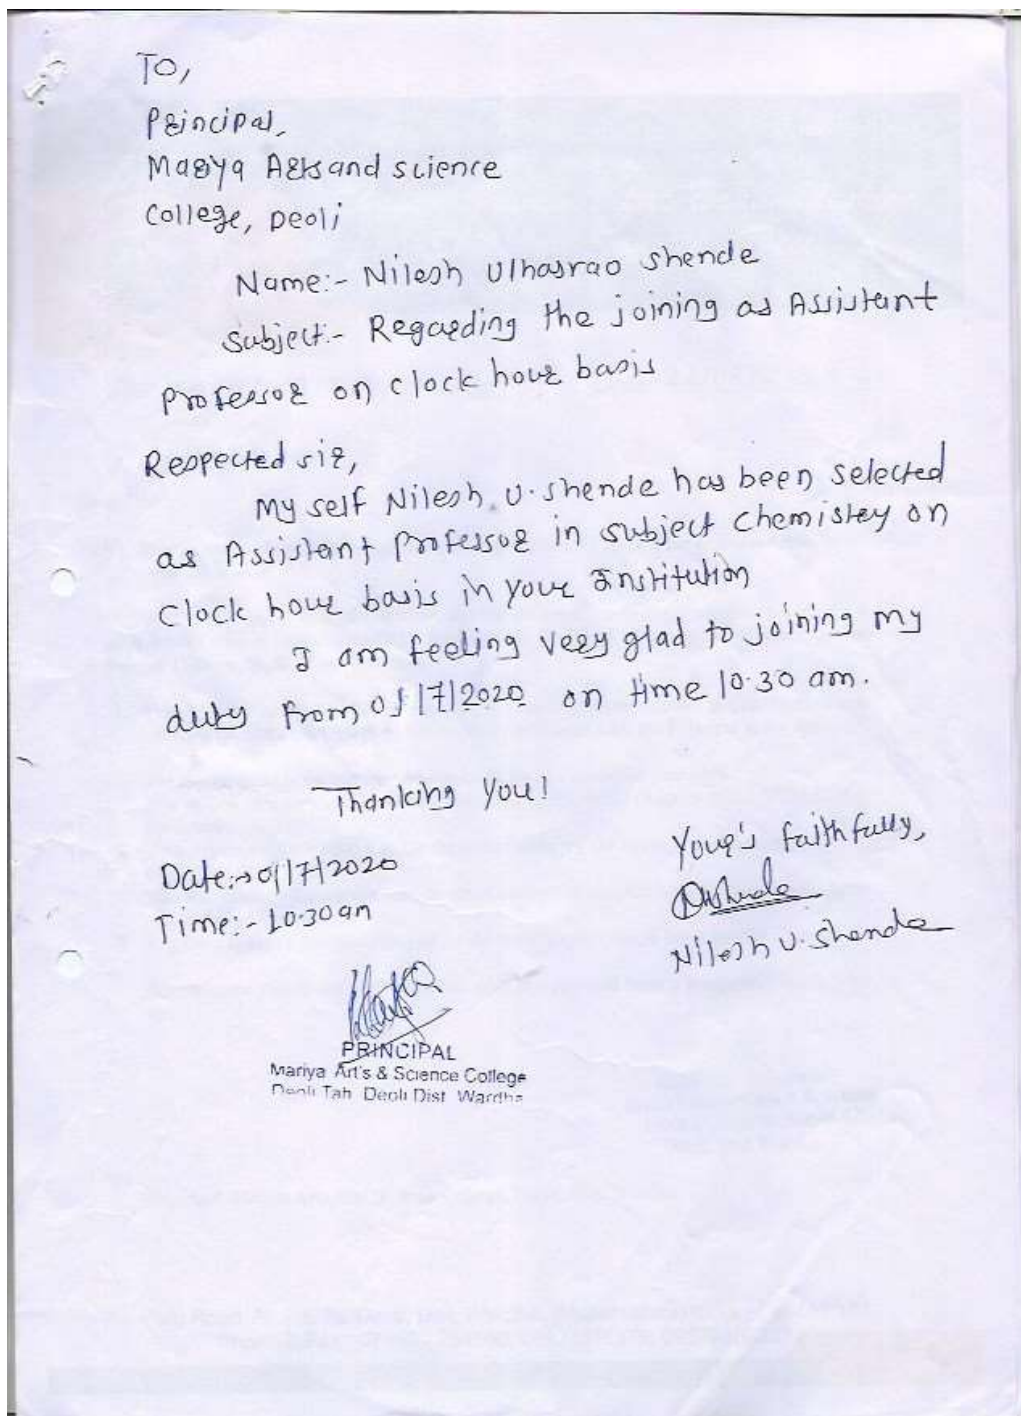 TO,
Principal,
Mariya Arts and science
College, Deoli
Name:- Nilesh Ulhasrao Shende
Subject:- Regarding the joining as Assistant
Professor on clock hour basis
Respected sir,
My self Nilesh. U. Shende has been selected
as Assistant Professor in subject Chemistry on
Clock hour basis in your Institution
I am feeling very glad to joining my
duty from 01/7/2020 on time 10.30 am.
Thanking You!
Your's faithfully,
Date:→01/7/2020
Time:- 10.30am
Nilesh U. Shende
PRINCIPAL
Mariya Art's & Science College
Deoli Tah Deoli Dist Wardha